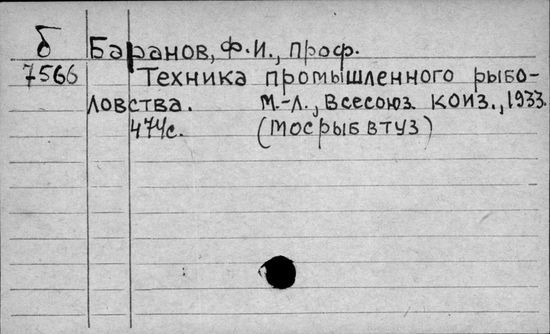 б Баранов, Ф.И., проф.
7566 Техника промышленного рыбо-
ловства. М.-Л., Всесоюз. КОИЗ., 1933.
474с. (Мосрыбвтуз)